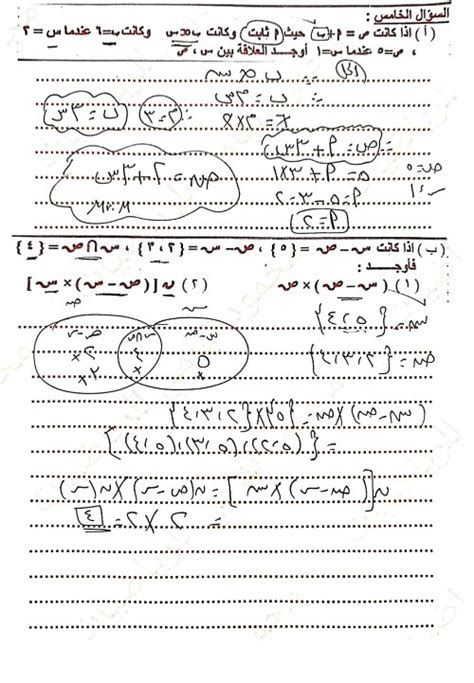 السؤال الخامس :
( أ ) اذا كانت ص = م + ب حيث م ثابت وكانت ب ∝ س وكانت ب = ٦ عندما س = ٢
، ص = ٥ عندما س = ١ أوجد العلاقة بين س ، ص
ب ∝ س
ب = م س
ب = ٣س
م = ٣
ص = م + ٣س
٥ = م + ٣×١
م = ٥ - ٣ = ٢
م = ٢
ص = ٢ + ٣س
ص = ٥
س = ١
( ب ) اذا كانت س - ص = {٥} ، ص - س = {٢ ، ٣} ، س ∩ ص = {٤}
فأوجد :
(١) (س - ص) × ص (٢) ن [(ص - س) × س]
س = {٤،٥}
ص = {٢،٣،٤}
(س - ص) × ص = {٥} × {٢،٣،٤}
= {(٥،٢)،(٥،٣)،(٥،٤)}
ن[(ص - س) × س] = ن(ص - س) × ن(س)
= ٢ × ٢ = ٤